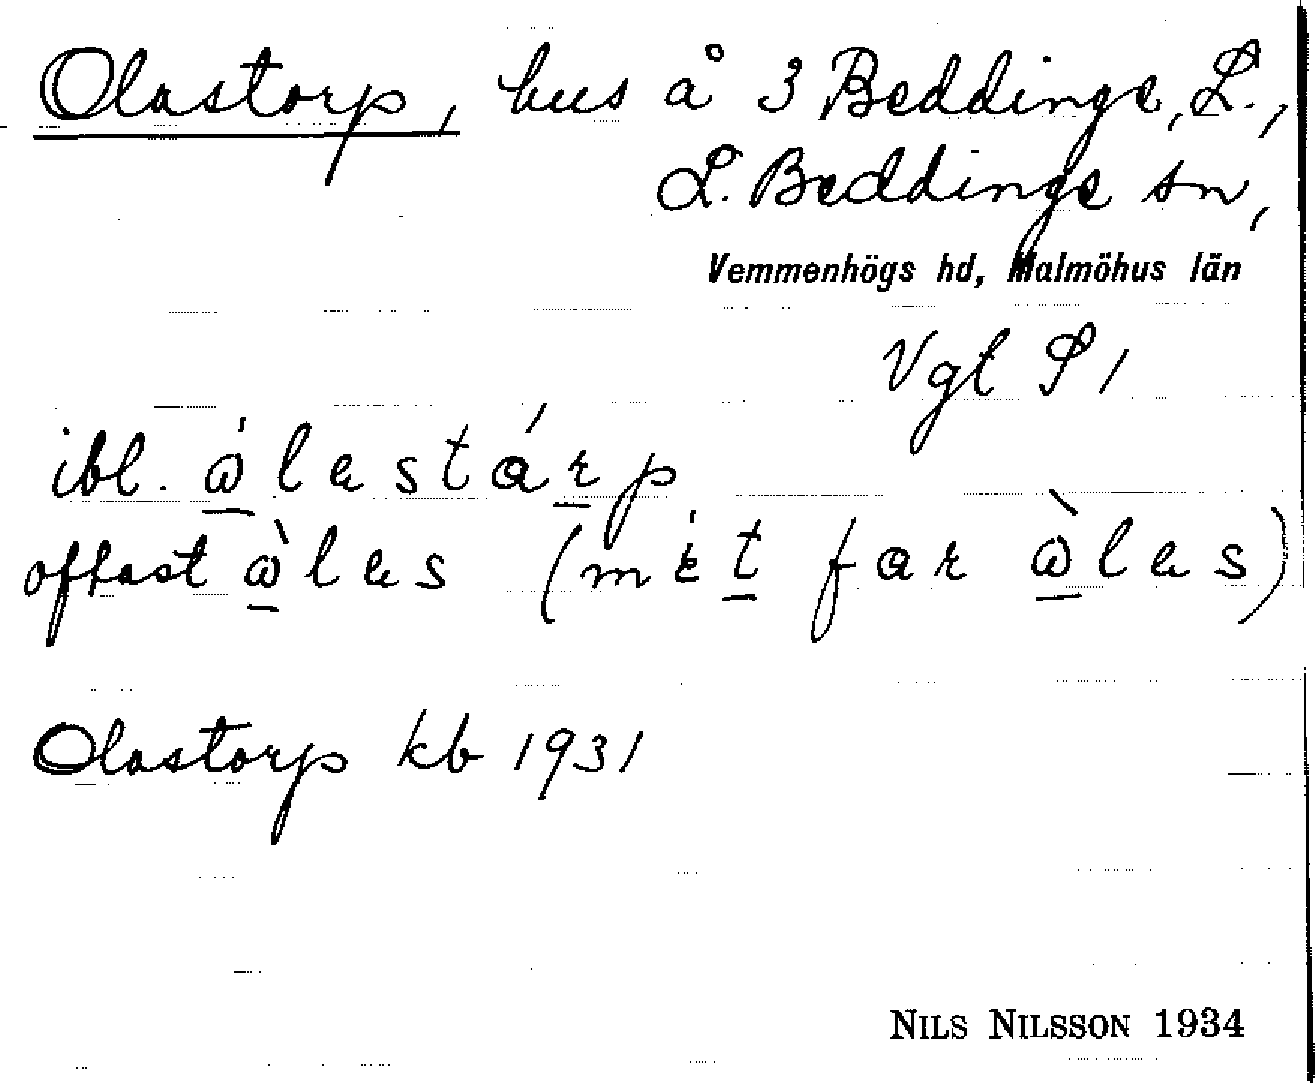 Olastorp, hus å 3 Beddinge, L.,
L. Beddinge sn,
Vemmenhögs hd, Malmöhus län
Vgl S 1
ibl. ώlastárp
oftast ὼlas (mεt far ὼlas)
Olastorp kb 1931
NILS NILSSON 1934